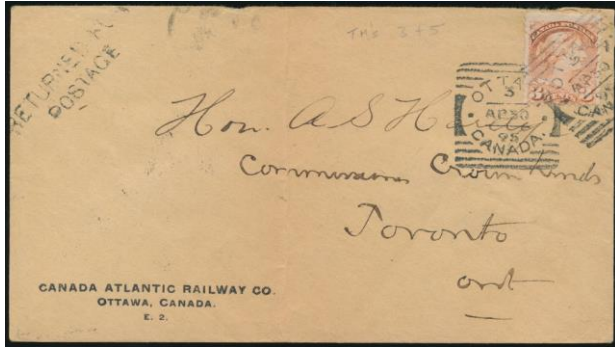 RETURNED FOR
POSTAGE
TM's 3 + 5
CANADA POSTAGE
OTTAWA
3
AP 30
95
CANADA.
Hon. A S Hardy
Commissioner Crown Lands
Toronto
Ont
CANADA ATLANTIC RAILWAY CO.
OTTAWA, CANADA.
E. 2.